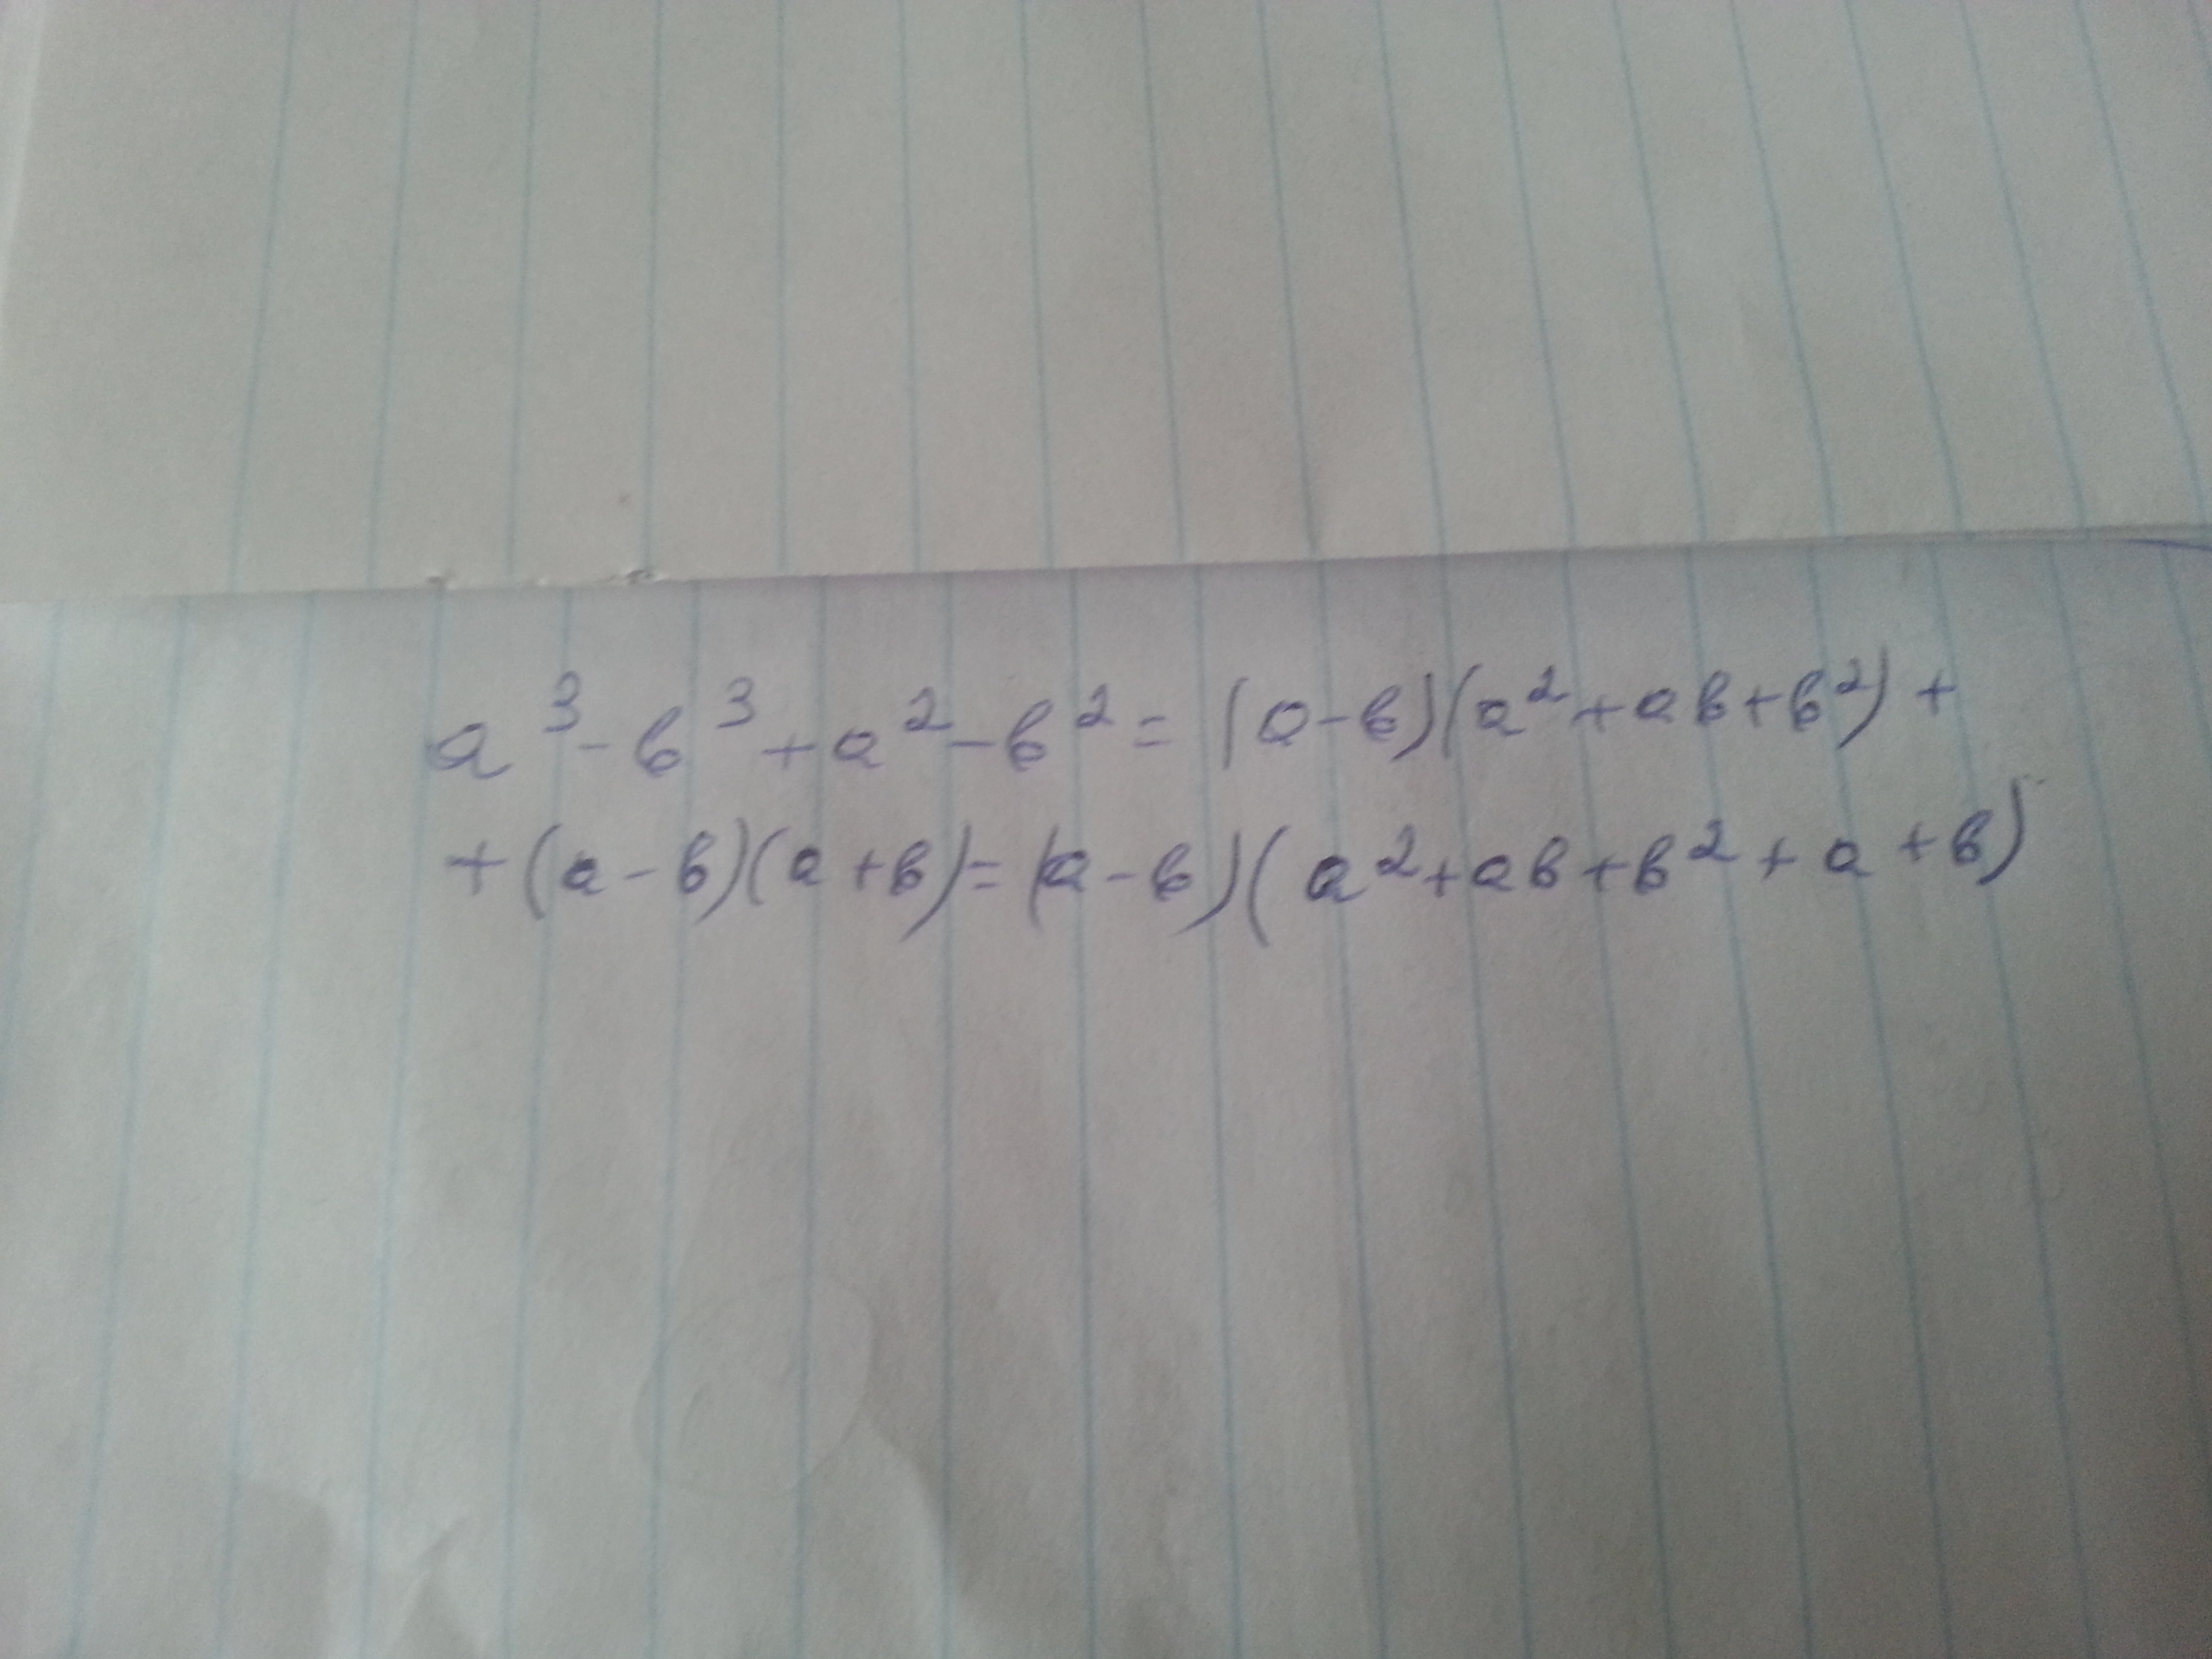 a³-b³+a²-b²=(a-b)(a²+ab+b²)+
+(a-b)(a+b)=(a-b)(a²+ab+b²+a+b)